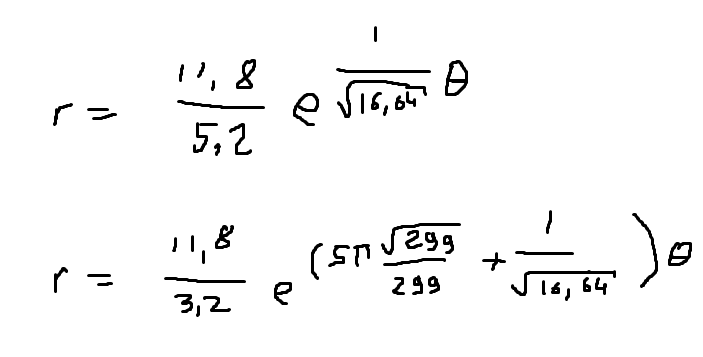 r = \frac{11,8}{5,2} e^{\frac{1}{\sqrt{16,64}} θ}
r = \frac{11,8}{3,2} e^{(5π \frac{\sqrt{299}}{299} + \frac{1}{\sqrt{16,64}}) θ}